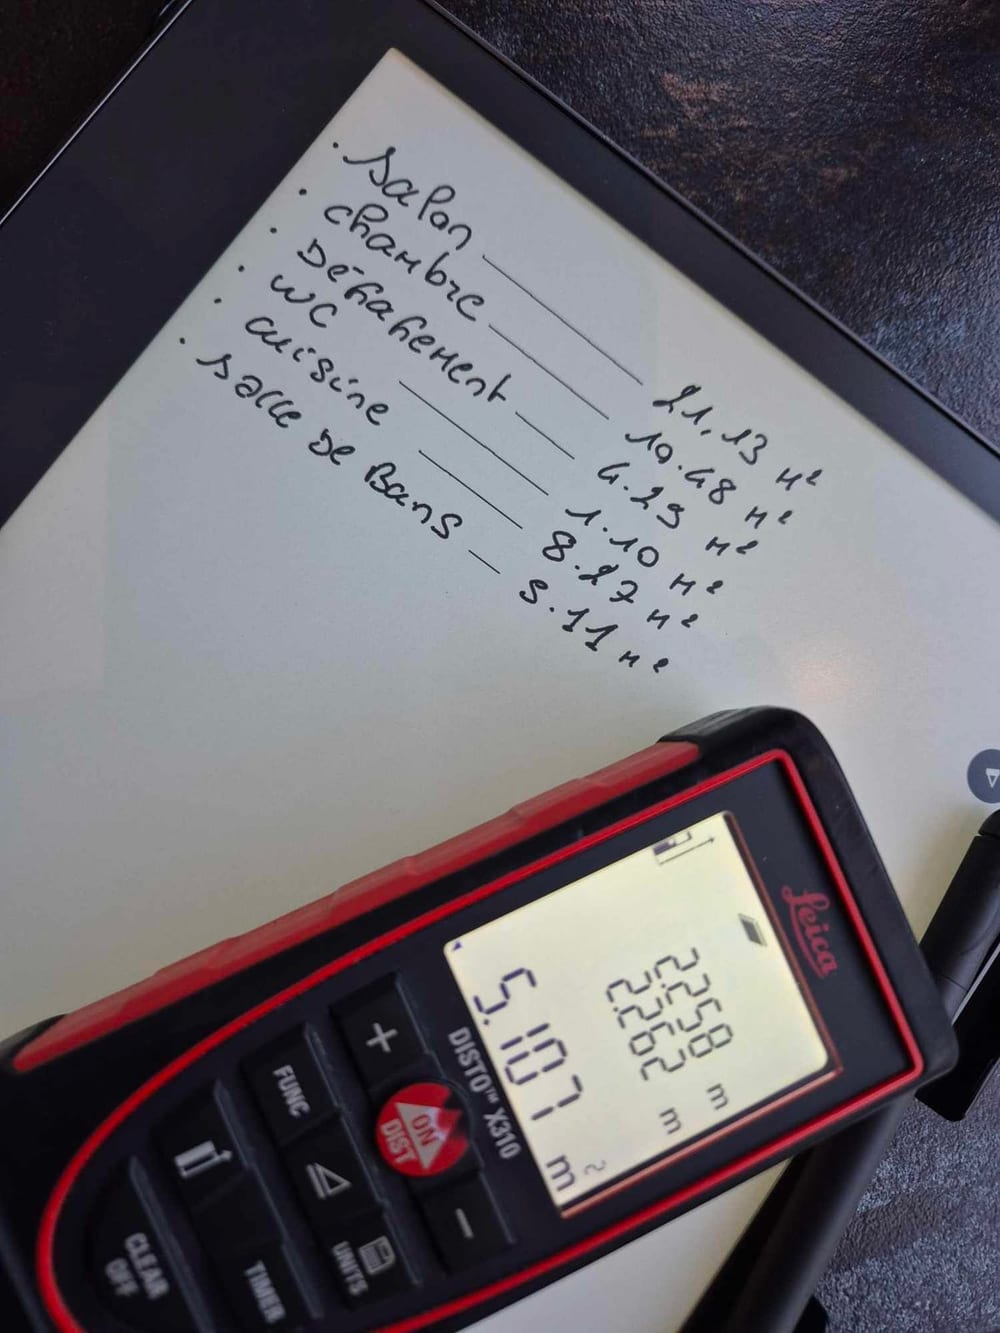 . Salon 21.13 m²
. chambre 10.48 m²
. Dégagement 4.29 m²
. WC 1.10 m²
. cuisine 8.27 m²
. Salle De Bans 5.11 m²
Leica
2.258 m
2.262 m
5.107 m²
DISTO™ X310
+
ON
DIST
−
FUNC
UNITS
TIMER
CLEAR
OFF